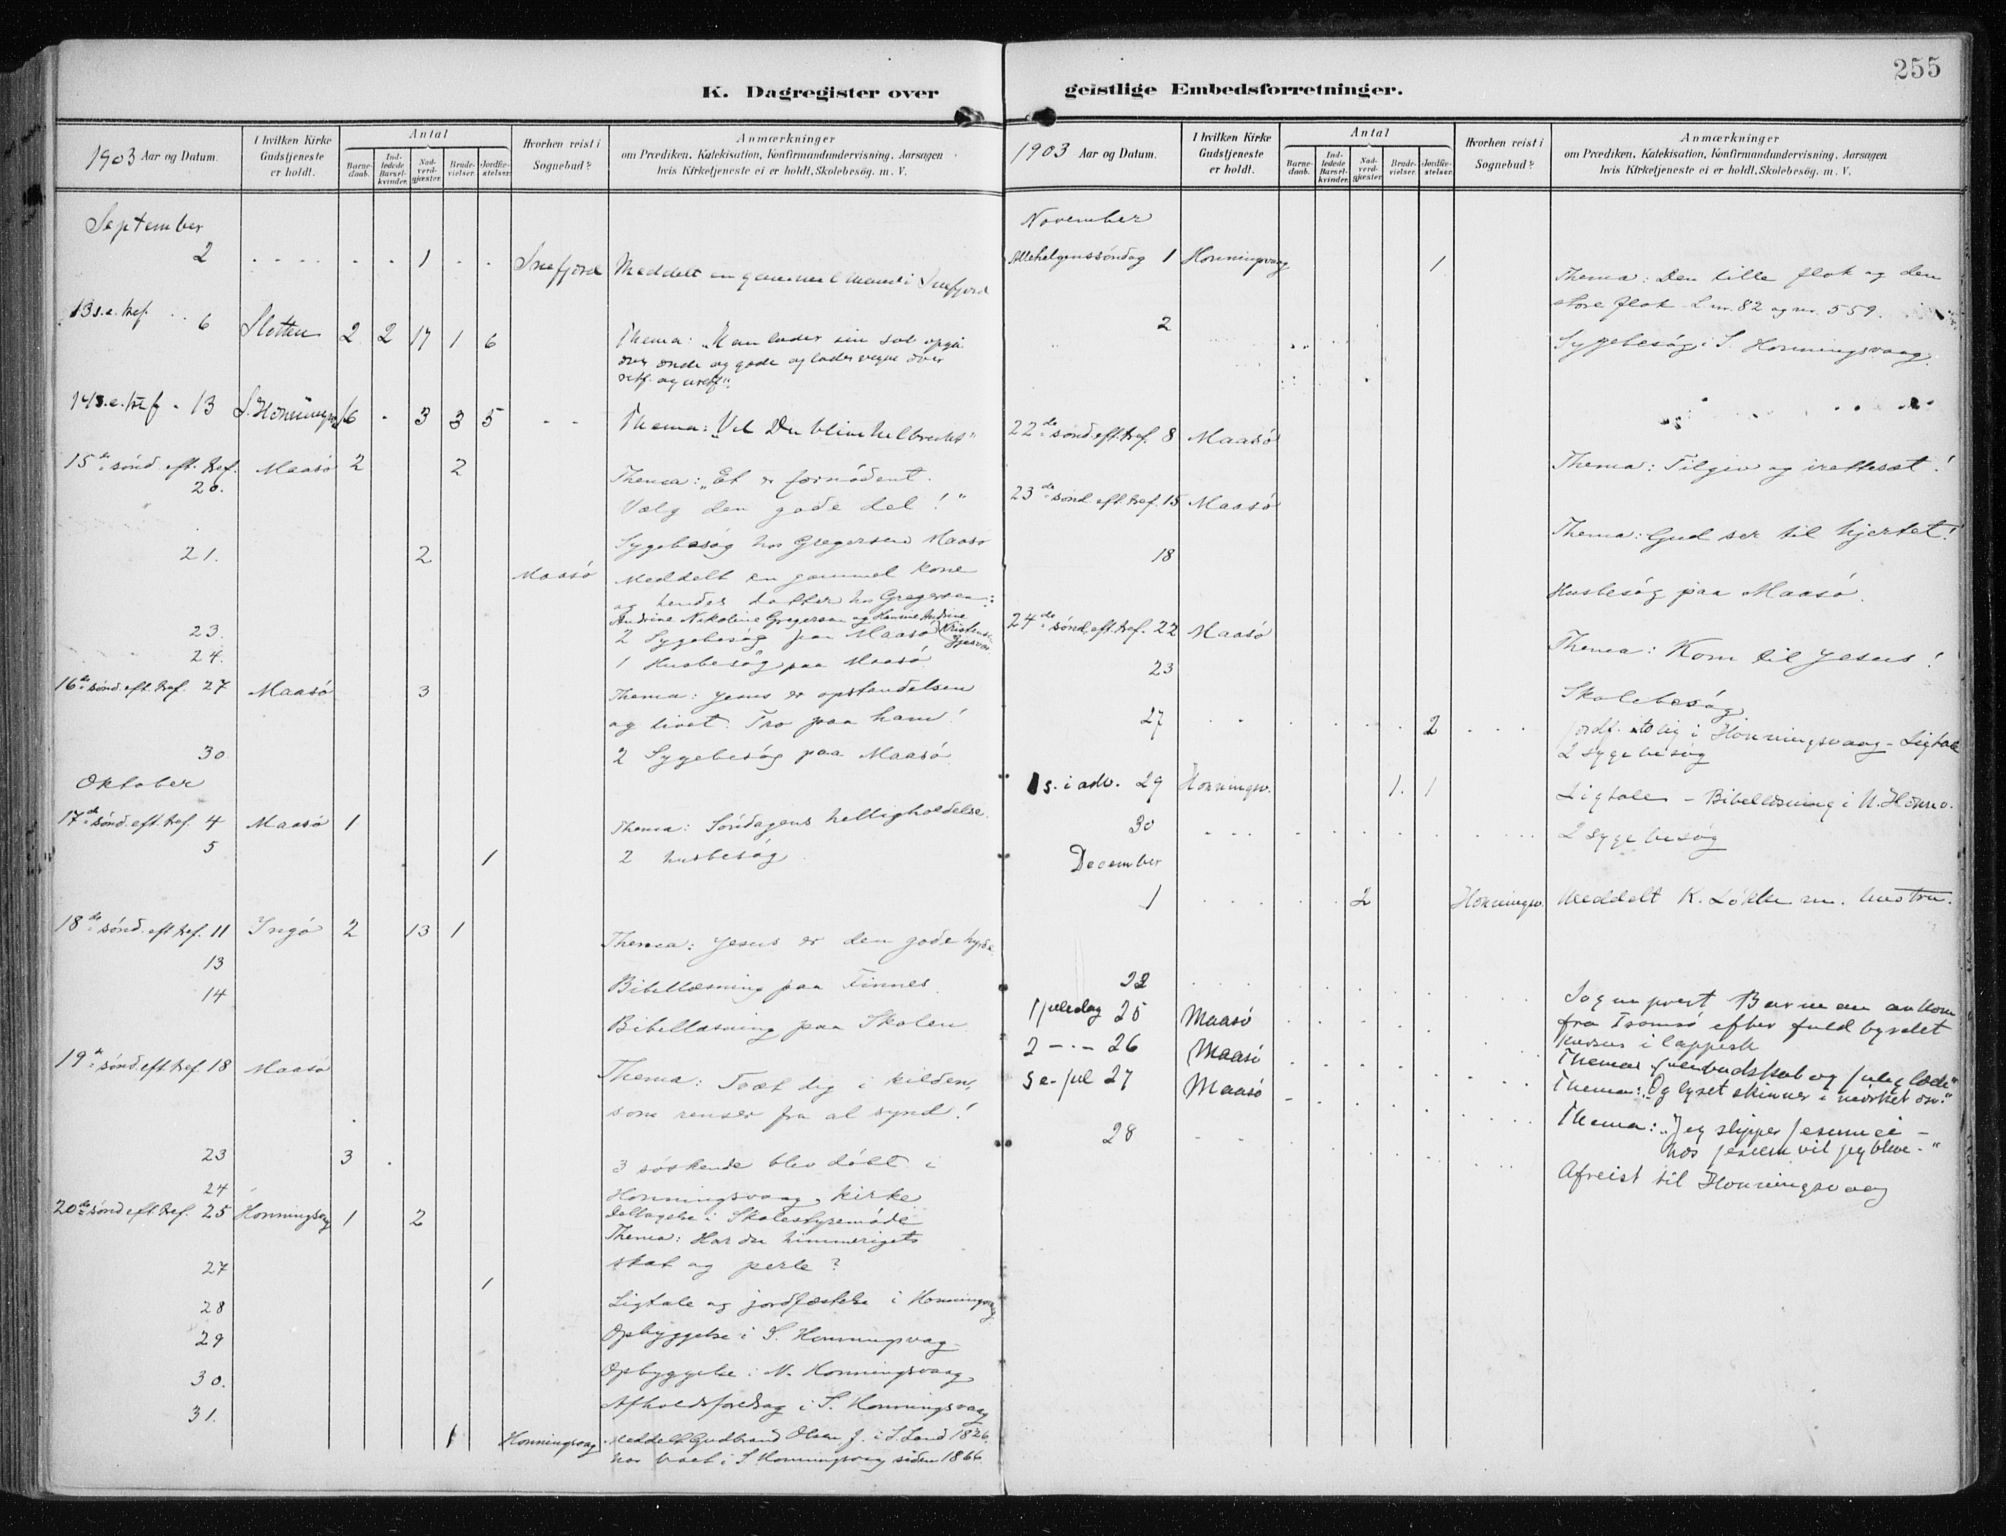 255
K. Dagregister over geistlige Embedsforretninger.
1903 Aar og Datum.
I hvilken Kirke Gudstjeneste er holdt.
Antal
Barnedaab.
Indledede Barselkvinder.
Nadverdgjæster.
Brudevielser.
Jordfæstelser.
Hvorhen reist i Sognebud?
Anmærkninger
om Prædiken, Katekisation, Konfirmandundervisning, Aarsagen
hvis Kirketjeneste ei er holdt, Skolebesøg m. V.
September
2 1 Snefjord Meddelt en gammel mand i Snefjord
13 s. e. tref. 6 Sletten 2 2 17 1 6 Thema: "Han lader sin sol opgå
over onde og gode og lader regne over
retf. og uretf."
14 s. e. tref. 13 S. Honningsv. 6 3 3 5 Thema: "Vil Du blive helbredet"
15de sønd. eft. tref. Maasø 2 2 Thema: "Et er fornødent.
20. Vælg den gode del!"
21. 2 Sygebesøg hos Gregersen Maasø
Maasø Meddelt en gammel kone
og hendes datter hos Gregersen:
Andrine Nikoline Gregersen og Andrine
23. 2 Sygebesøg paa Maasø
24. 1 Husbesøg paa Maasø
16de sønd. eft. tref. 27 Maasø 3 Thema: Jesus er opstandelsen
og livet. Tro paa ham!
30 2 Sygebesøg paa Maasø.
Oktober
17de sønd. eft. tref. 4 Maasø 1 Thema: Søndagens helligholdelse.
5 1 2 husbesøg.
18de sønd. eft. tref. 11 Ingø 2 13 1 Thema: Jesus er den gode hyrde
13 Bibellæsning paa Finnes.
14 Bibellæsning paa Skolen
19de sønd. eft. tref. 18 Maasø Thema: Toæt dig i kilden,
som renser fra al synd!
23 3 3 søskende blev døbt i
24 Honningsvaag kirke
20de sønd. eft. tref. 25 Honningsvag 1 2 Deltagelse i Skolestyremøde
Thema: Har du himmerigets
27 skat og perle?
28 1 Ligtale og jordfæstelse i Honningsvag
29 Opbyggelse i S. Honningsvag
30. Opbyggelse i N. Honningsvaag
31. Afholdsforedrag i S. Honningsvaag
1 Honningsvag Meddelt Gudbrand Olsen f. i S. Land 1826,
har boet i S Honningsvaag siden 1866
1903 Aar og Datum.
I hvilken Kirke Gudstjeneste er holdt.
Antal
Barnedaab.
Indledede Barselkvinder.
Nadverdgjæster.
Brudevielser.
Jordfæstelser.
Hvorhen reist i Sognebud?
Anmærkninger
om Prædiken, Katekisation, Konfirmandundervisning, Aarsagen
hvis Kirketjeneste ei er holdt, Skolebesøg m. V.
November
Allehelgenssøndag 1 Honningsvaag 1 Thema: Den lille flok og den
store flok L. nr. 82 og nr. 559.
2 Sygebesøg i S. Honningsvaag.
22de sønd. eft. tref. 8 Maasø Thema: Tilgiv og irettesæt!
23de sønd. eft. tref. 15 Maasø Thema: Gud ser til hjertet!
18 Husbesøg paa Maasø.
24de sønd. eft. tref. 22 Maasø Thema: Kom til Jesus!
23 Skolebesøg
27 2 i Honningsvaag - Ligtale
2 sygebesøg
1 s. i adv. 29 Honningsv. 1. 1 Ligtale - Bibellæsning i N. Honnv.
30 2 sygebesøg
December
1 2 Honningsv. Meddelt K. Løkke m. hustru.
22 Sogneprest ankom
fra Tromsø efter fuldbyrdet
kursus i lappisk
1 juledag 25 Maasø Thema: Julebudskab og juleglæde"
2 -"- 26 Maasø Thema: "Og lyset skinner i mørket osv."
S e. jul 27 Maasø Thema: "Jeg slipper Jesum ei -
hos Jesum vil jeg blive -"
28 Afreist til Honningsvaag